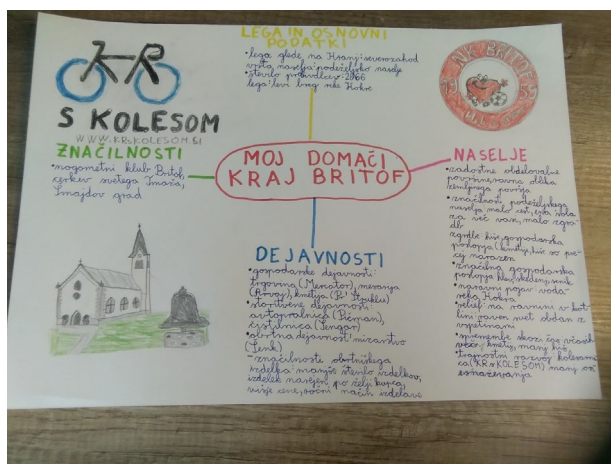 LEGA IN OSNOVNI
PODATKI
•lega glede na Kranj: severozahod
vrsta naselja: podeželjsko naselje
•število prebivalcev: 2066
lega: levi breg reke Kokre
KR
S KOLESOM
WWW.KRSKOLESOM.SI
NK BRITOF
ZNAČILNOSTI
•nogometni klub Britof,
cerkev svetega Tomaža,
Smajdov grad
MOJ DOMAČI
KRAJ BRITOF
NASELJE
površine, ravna oblika
zemljinega površja
•značilnosti podeželjskega
naselja malo cest, ena šola
za več vasi, malo zgra-
db
zgradbe hiše, gospodarska
poslopja (kmetije, hiše so pre-
cej narazen
•značilna gospodarska
•naravni pojav: voda
reka Kokra
•relief: na ravnini v kot-
lini raven svet obdan z
vzpetinami
•spremembe skozi čas včasih
več kmetij, manj hiš,
•trajnostni razvoj kolesarni-
ca (KR s KOLESOM) manj on-
esnaževanja
DEJAVNOSTI
•gospodarske dejavnosti:
trgovina (Mercator), mesarija
(Arvaj), kmetija (Pr' Štefelu)
•storitvene dejavnosti:
avtopralnica (Pičman),
čistilnica (Jengar)
•obrtna dejavnost mizarstvo
(Jenk)
-značilnosti obrtniškega
izdelka: manjše število izdelkov,
izdelek narejen po želji kupca,
višje cene, ročni način izdelave